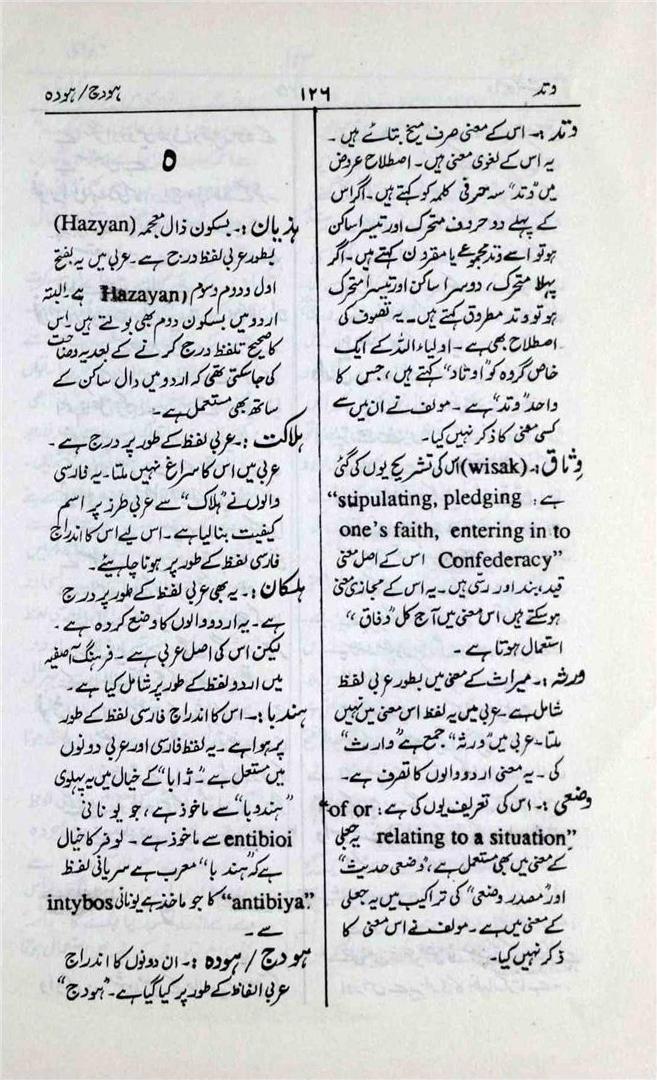 وتد
۱۲۶
ہودج/ہودہ
وتد :۔ اس کے معنی صرف میخ بتائے ہیں۔
یہ اس کے لغوی معنی ہیں۔ اصطلاح عروض
میں "وتد" سہ حرفی کلمہ کو کہتے ہیں۔ اگر اس
کے پہلے دو حروف متحرک اور تیسرا ساکن
ہو تو اسے وتد مجموع یا مقرون کہتے ہیں۔ اگر
پہلا متحرک، دوسرا ساکن اور تیسرا متحرک
ہو تو وتد مفروق کہتے ہیں۔ یہ تصوف کی
اصطلاح بھی ہے۔ اولیاء اللہ کے ایک
خاص گروہ کو "اوتاد" کہتے ہیں، جس کا
واحد "وتد" ہے۔ مولف نے ان میں سے
کسی معنی کا ذکر نہیں کیا۔
وِثاق :۔ (wisak) اس کی تشریح یوں کی گئی
ہے: "stipulating, pledging
one's faith, entering in to
Confederacy" اس کے اصل معنی
قید، بند اور رسّی ہیں۔ یہ اس کے مجازی معنی
ہو سکتے ہیں اس معنی میں آج کل "وفاق"
استعمال ہوتا ہے۔
ورثہ :۔ میراث کے معنی میں بطور عربی لفظ
شامل ہے۔ عربی میں یہ لفظ اس معنی میں نہیں
ملتا۔ عربی میں "ورثہ" جمع ہے "وارث"
کی۔ یہ معنی اردو والوں کا تصرف ہے۔
وضعی :۔ اس کی تعریف یوں کی ہے: "of or
relating to a situation" یہ جعلی
کے معنی میں بھی مستعمل ہے، "وضعی حدیث"
اور "مصدر وضعی" کی تراکیب میں یہ جعلی
کے معنی میں ہے۔ مولف نے اس معنی کا
ذکر نہیں کیا۔
ہ
ہذیان :۔ بسکون ذال معجمہ (Hazyan)
بطور عربی لفظ درج ہے۔ عربی میں یہ بفتح
اول و دوم و سوم (Hazayan ہے۔ البتہ
اردو میں بسکون دوم بھی بولتے ہیں۔ اس
کا صحیح تلفظ درج کرنے کے بعد یہ وضاحت
کی جاسکتی تھی کہ اردو میں دال ساکن کے
ساتھ بھی مستعمل ہے۔
ہلاکت :۔ عربی لفظ کے طور پر درج ہے۔
عربی میں اس کا سراغ نہیں ملتا۔ یہ فارسی
والوں نے "ہلاک" سے عربی طرز پر اسم
کیفیت بنالیا ہے۔ اس لیے اس کا اندراج
فارسی لفظ کے طور پر ہونا چاہیئے۔
ہلکان :۔ یہ بھی عربی لفظ کے طور پر درج
ہے۔ یہ اردو والوں کا وضع کردہ ہے۔
لیکن اس کی اصل عربی ہے۔ فرہنگ آصفیہ
میں اردو لفظ کے طور پر شامل کیا ہے۔
ہندبا :۔ اس کا اندراج فارسی لفظ کے طور
پر ہوا ہے۔ یہ لفظ فارسی اور عربی دونوں
میں مستعمل ہے۔ کے خیال میں یہ پہلوی
"ہندوبا" سے ماخوذ ہے، جو یونانی
entibioi سے ماخوذ ہے۔ لوفر کا خیال
ہے کہ "ہندبا" معرب ہے سریانی لفظ
"antibiya" کا جو ماخذ ہے یونانی intybos
سے۔
ہودج / ہودہ :۔ ان دونوں کا اندراج
عربی الفاظ کے طور پر کیا گیا ہے۔ "ہودج"